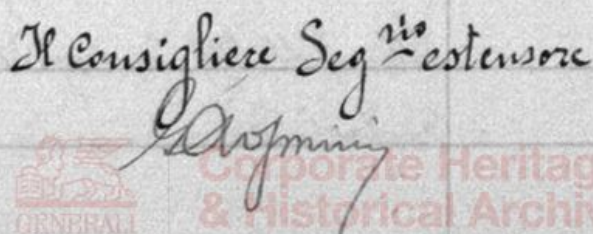 Il Consigliere Seg.rio estensore
GENERALI
Corporate Heritage
& Historical Archive